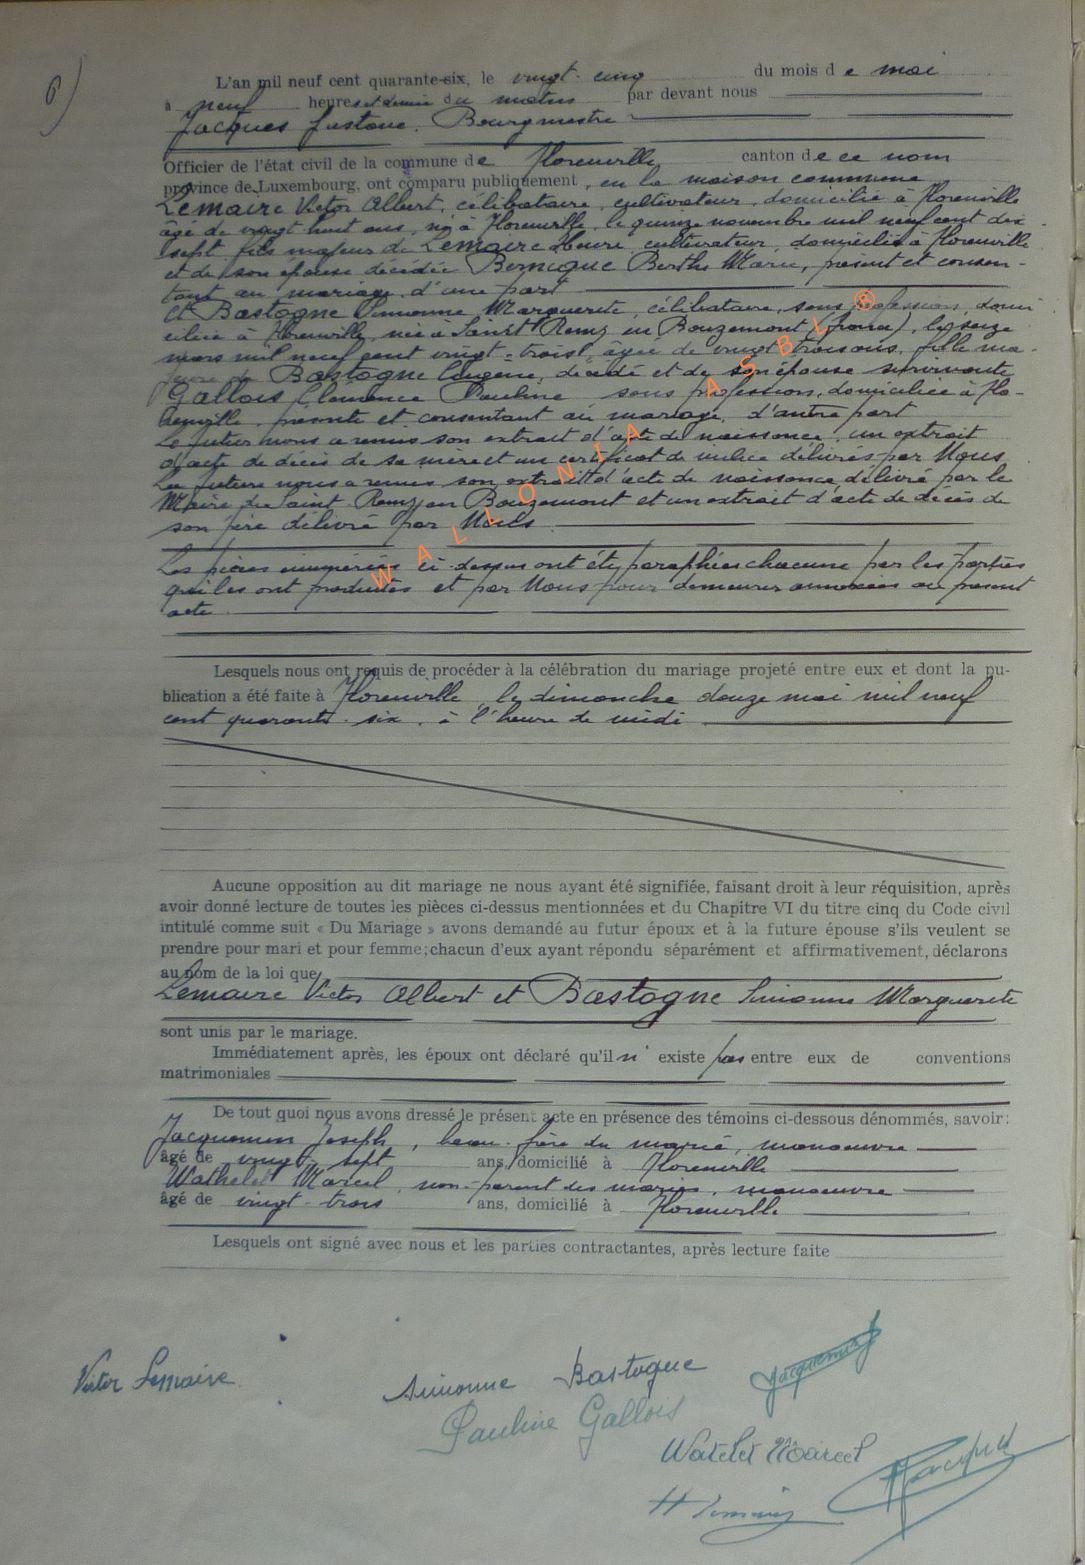 6)
L'an mil neuf cent quarante-six, le vingt-cinq du mois de mai
à neuf heures et demie du matin par devant nous
Jacques Gustave, Bourgmestre
Officier de l'état civil de la commune de Florenville canton de ce nom
province de Luxembourg, ont comparu publiquement, en la maison commune
Lemaire Victor Albert, célibataire, cultivateur, domicilié à Florenville
âgé de vingt huit ans, né à Florenville, le quinze novembre mil neuf cent dix
sept, fils majeur de Lemaire Henri cultivateur, domicilié à Florenville
et de son épouse décédée Bernique Berthe Marie, présent et consen-
tant au mariage, d'une part
et Bastogne Simonne Marguerite, célibataire, sans profession, domi
ciliée à Florenville, née à Saint Remy en Bouzemont (France), le seize
mars mil neuf cent vingt-trois, âgée de vingt trois ans, fille ma-
jeure de Bastogne Eugène, décédé et de son épouse survivante
Gallois Clemence Pauline sans profession, domiciliée à Flo-
renville, présente et consentant au mariage, d'autre part
Le futur nous a remis son extrait d'acte de naissance, un extrait
d'acte de décès de sa mère et un certificat de milice délivrés par Nous
La future nous a remis son extrait d'acte de naissance délivré par le
Maire de Saint Remy en Bouzemont et un extrait d'acte de décès de
son père délivré par Nous.
Les pièces énumérées ci-dessus ont été paraphées chacune par les parties
qui les ont produites et par Nous pour demeurer annexées au présent
acte.
WALLONIA ASBL ®
Lesquels nous ont requis de procéder à la célébration du mariage projeté entre eux et dont la pu-
blication a été faite à Florenville le dimanche douze mai mil neuf
cent quarante-six, à l'heure de midi
Aucune opposition au dit mariage ne nous ayant été signifiée, faisant droit à leur réquisition, après
avoir donné lecture de toutes les pièces ci-dessus mentionnées et du Chapitre VI du titre cinq du Code civil
intitulé comme suit « Du Mariage » avons demandé au futur époux et à la future épouse s'ils veulent se
prendre pour mari et pour femme; chacun d'eux ayant répondu séparément et affirmativement, déclarons
au nom de la loi que
Lemaire Victor Albert et Bastogne Simonne Marguerite
sont unis par le mariage.
Immédiatement après, les époux ont déclaré qu'il n'existe pas entre eux de conventions
matrimoniales
De tout quoi nous avons dressé le présent acte en présence des témoins ci-dessous dénommés, savoir:
Jacquemin Joseph, beau-frère du marié, manoeuvre
âgé de vingt-sept ans, domicilié à Florenville
Wathelet Marcel, non-parent des mariés, manoeuvre
âgé de vingt-trois ans, domicilié à Florenville
Lesquels ont signé avec nous et les parties contractantes, après lecture faite
Victor Lemaire
Simonne Bastogne
Jacquemin J
Pauline Gallois
Watelet Marcel
Jacques
H Lemaire